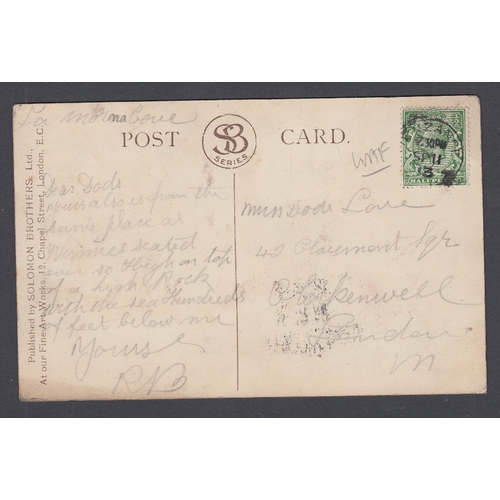 La Moinna Cove
POST CARD.
SB
SERIES
Published by SOLOMON BROTHERS, Ltd.,
At our Fine Art Works, 12, Chapel Street, London, E.C.
Dear Dods
this also is from the
same place as
Winnies seated
ever so High on top
of a high Rock
with the sea Hundreds
of feet below me
Yours
RB
Miss Dods Love
42 Claremont Sqr
Clerkenwell
London
2.30 PM
SP 11
13